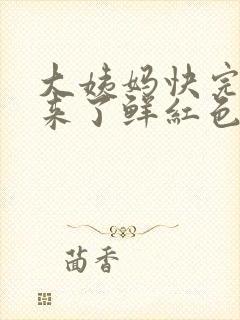 大姨妈快完
来了鲜红色
茴香